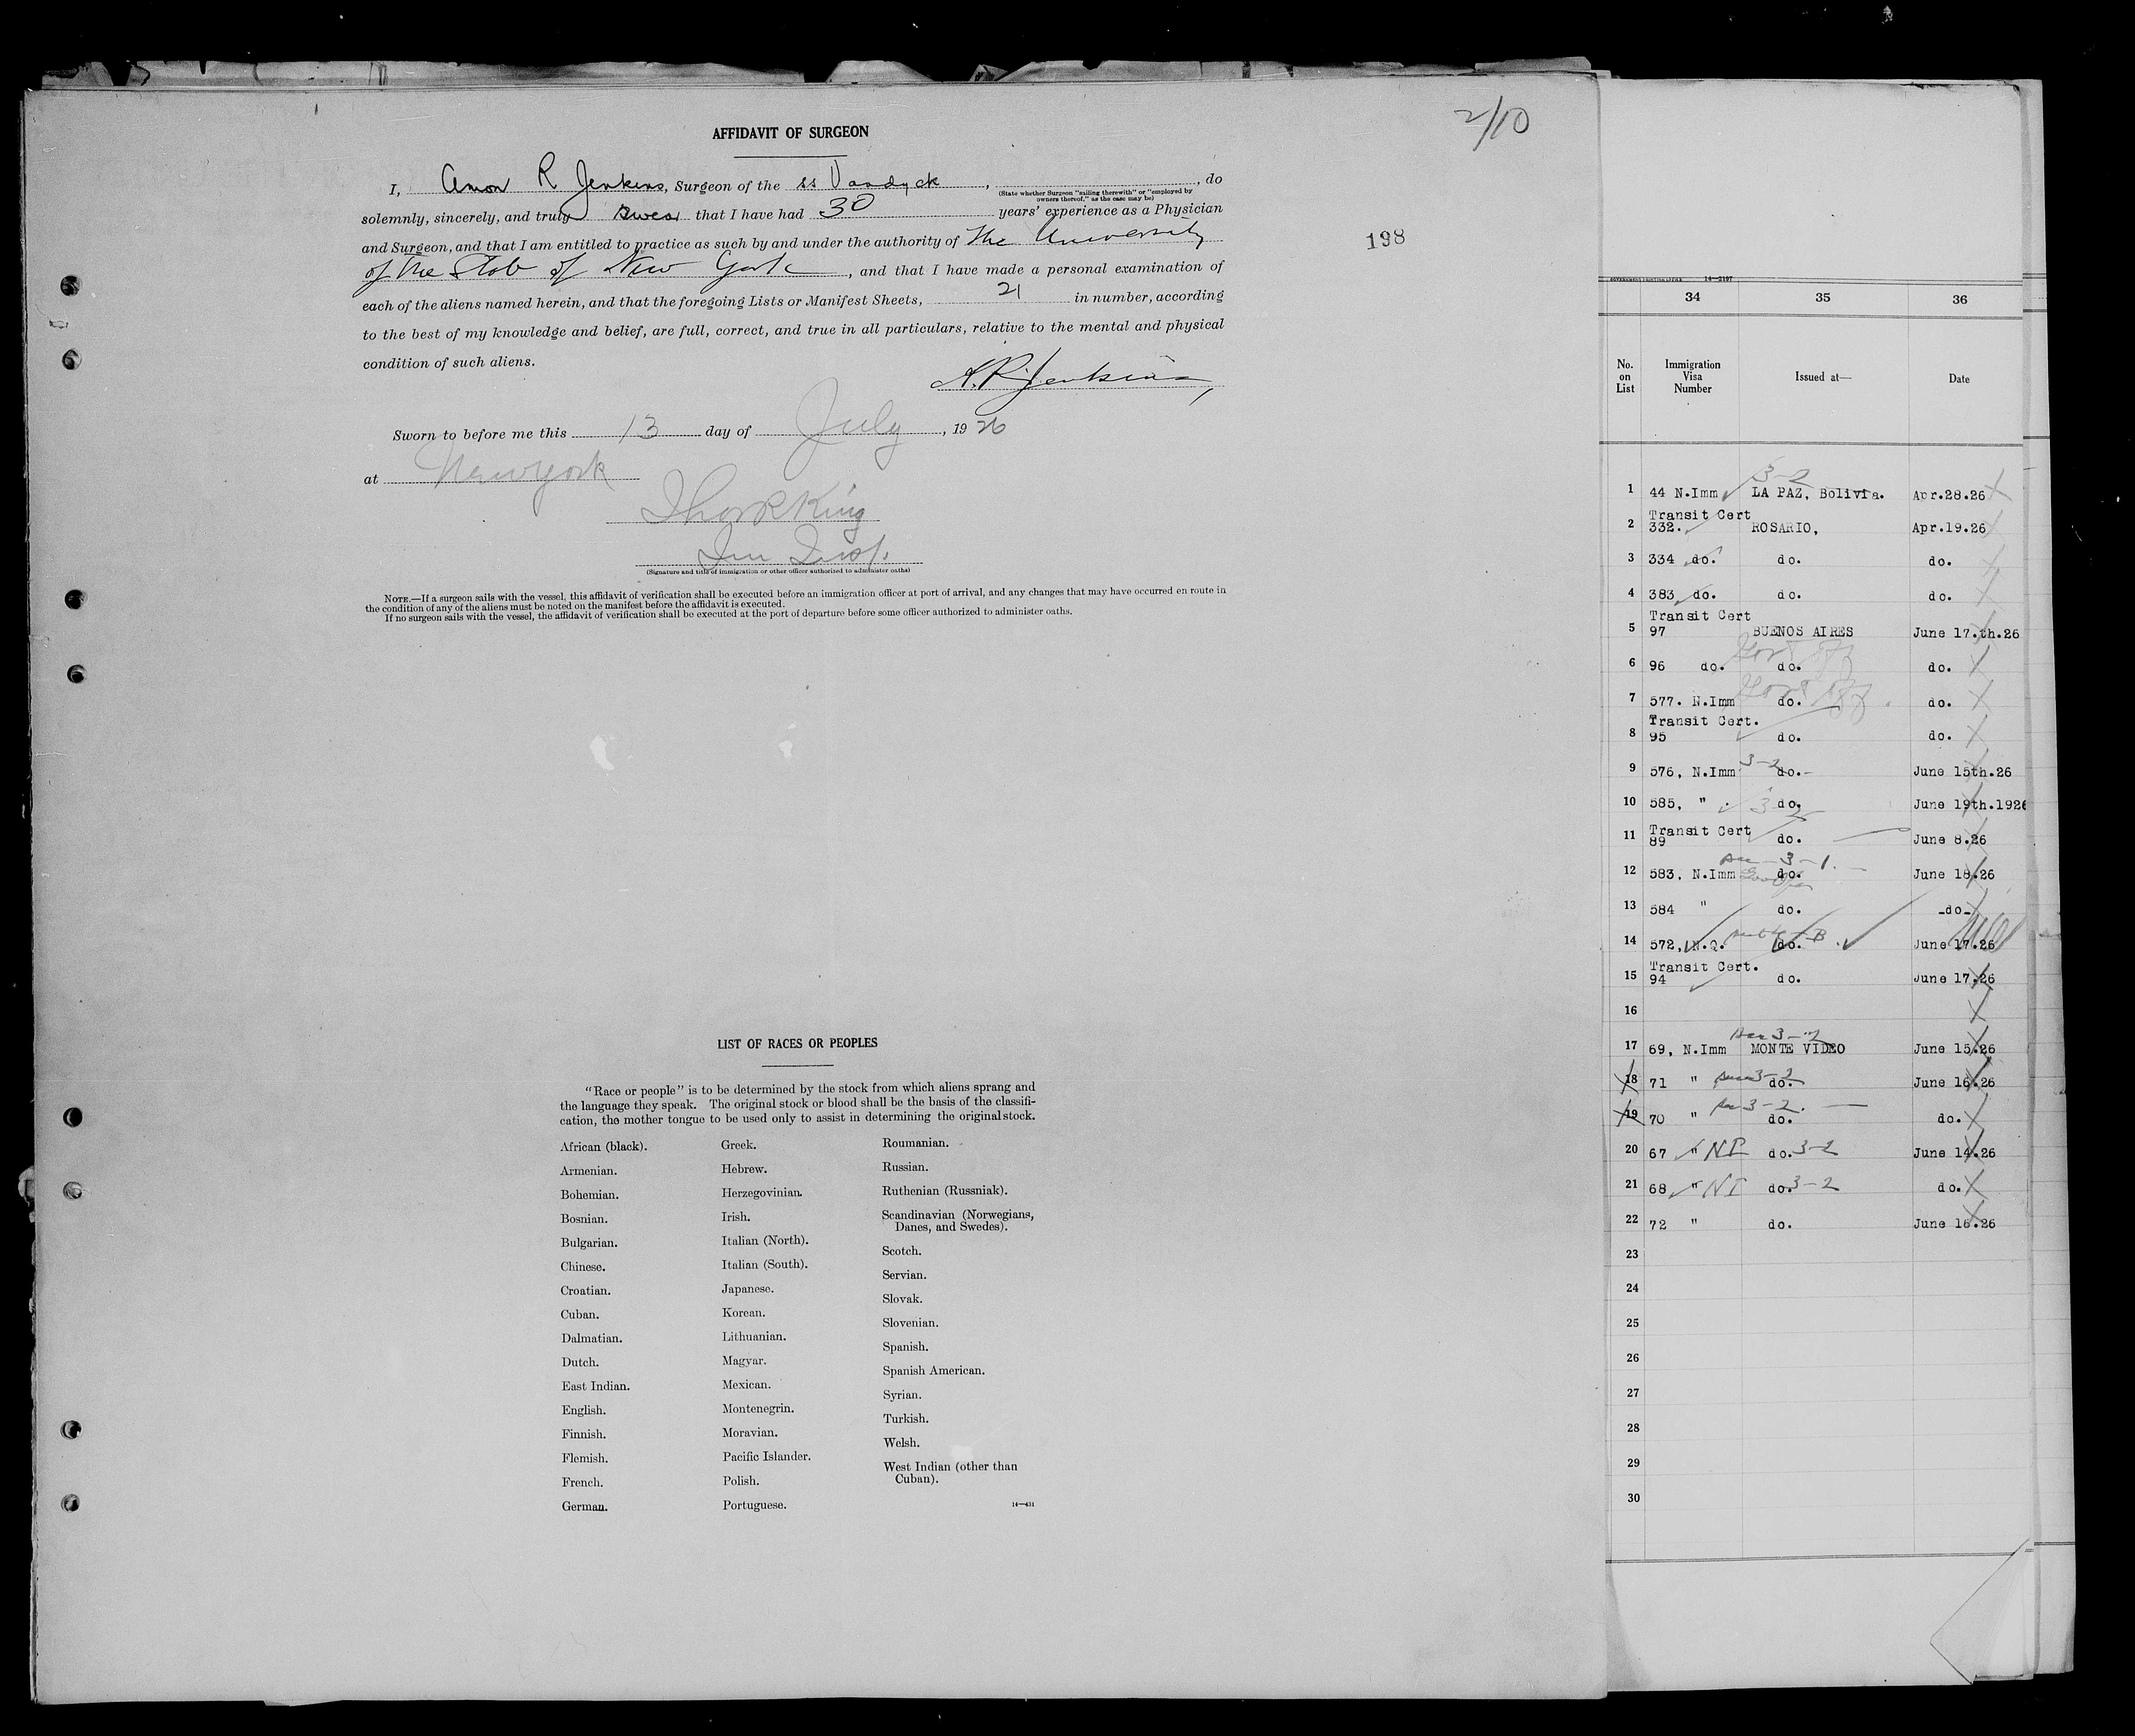 2/10
AFFIDAVIT OF SURGEON
I, Amon R Jenkins, Surgeon of the ss Vandyck, , do
(State whether Surgeon "sailing therewith" or "employed by
owners thereof," as the case may be)
solemnly, sincerely, and truly swear that I have had 30 years' experience as a Physician
and Surgeon, and that I am entitled to practice as such by and under the authority of The University
of the State of New York, and that I have made a personal examination of
each of the aliens named herein, and that the foregoing Lists or Manifest Sheets, 21 in number, according
to the best of my knowledge and belief, are full, correct, and true in all particulars, relative to the mental and physical
condition of such aliens.
A. R. Jenkins,
Sworn to before me this 13 day of July, 1926
at New York
King
Im Insp.
(Signature and title of immigration or other officer authorized to administer oaths)
NOTE.—If a surgeon sails with the vessel, this affidavit of verification shall be executed before an immigration officer at port of arrival, and any changes that may have occurred en route in
the condition of any of the aliens must be noted on the manifest before the affidavit is executed.
If no surgeon sails with the vessel, the affidavit of verification shall be executed at the port of departure before some officer authorized to administer oaths.
198
LIST OF RACES OR PEOPLES
"Race or people" is to be determined by the stock from which aliens sprang and
the language they speak. The original stock or blood shall be the basis of the classifi-
cation, the mother tongue to be used only to assist in determining the original stock.
African (black).
Armenian.
Bohemian.
Bosnian.
Bulgarian.
Chinese.
Croatian.
Cuban.
Dalmatian.
Dutch.
East Indian.
English.
Finnish.
Flemish.
French.
German.
Greek.
Hebrew.
Herzegovinian.
Irish.
Italian (North).
Italian (South).
Japanese.
Korean.
Lithuanian.
Magyar.
Mexican.
Montenegrin.
Moravian.
Pacific Islander.
Polish.
Portuguese.
Roumanian.
Russian.
Ruthenian (Russniak).
Scandinavian (Norwegians,
Danes, and Swedes).
Scotch.
Servian.
Slovak.
Slovenian.
Spanish.
Spanish American.
Syrian.
Turkish.
Welsh.
West Indian (other than
Cuban).
14—431
GOVERNMENT PRINTING OFFICE 14—2197
34 35 36
No. on List Immigration Visa Number Issued at— Date
3-2
1 44 N.Imm LA PAZ, Bolivia. Apr.28.26
Transit Cert
2 332. ROSARIO, Apr.19.26
3 334 do. do. do.
4 383 do. do. do.
Transit Cert
5 97 BUENOS AIRES June 17.th.26
6 96 do. do. do.
7 577. N.Imm do. do.
Transit Cert.
8 95 do. do.
9 576, N.Imm 3-2 do.- June 15th.26
10 585, " 3-2 do. June 19th.1926
Transit Cert
11 89 do. June 8.26
3-1.
12 583, N.Imm do. June 18.26
13 584 " do. -do-
14 572, N.Q. do. June 17.26
Transit Cert.
15 94 do. June 17.26
16
3-2
17 69, N.Imm MONTE VIDEO June 15.26
18 71 " 3-2 do. June 16.26
19 70 " 3-2. do. do.
20 67 " NI do. 3-2 June 14.26
21 68 " NI do. 3-2 do.
22 72 " do. June 16.26
23
24
25
26
27
28
29
30